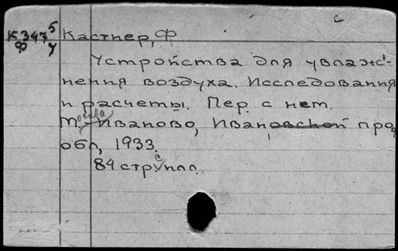 с
К347 5 Кастнер, Ф
Ф у
Устройства для увлаж-
нения воздуха. Исследования
и расчеты. Пер. с нем.
М.-Иваново, Ивановской про
обл, 1933.
84 стр. илл.